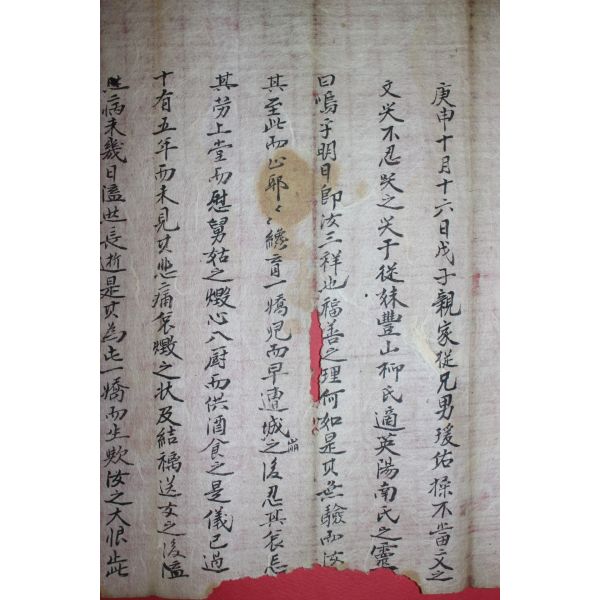 庚申十月十六日戊子親家從兄男瑗佑操不當文之
文哭不忍哭之哭于從妹豐山柳氏適英陽南氏之靈
曰嗚乎明日即汝三祥也福善之理何如是其無驗而汝
其至此而止耶々々纔育一嬌児而早遭城崩之後忍其哀忘
其勞上堂而慰舅姑之燬心入厨而供酒食之是儀已過
十有五年而未見其悲痛哀燬之状及結褵送女之後溘
然病未幾日溘逝長逝是其為此一嬌而生歟汝之大恨此